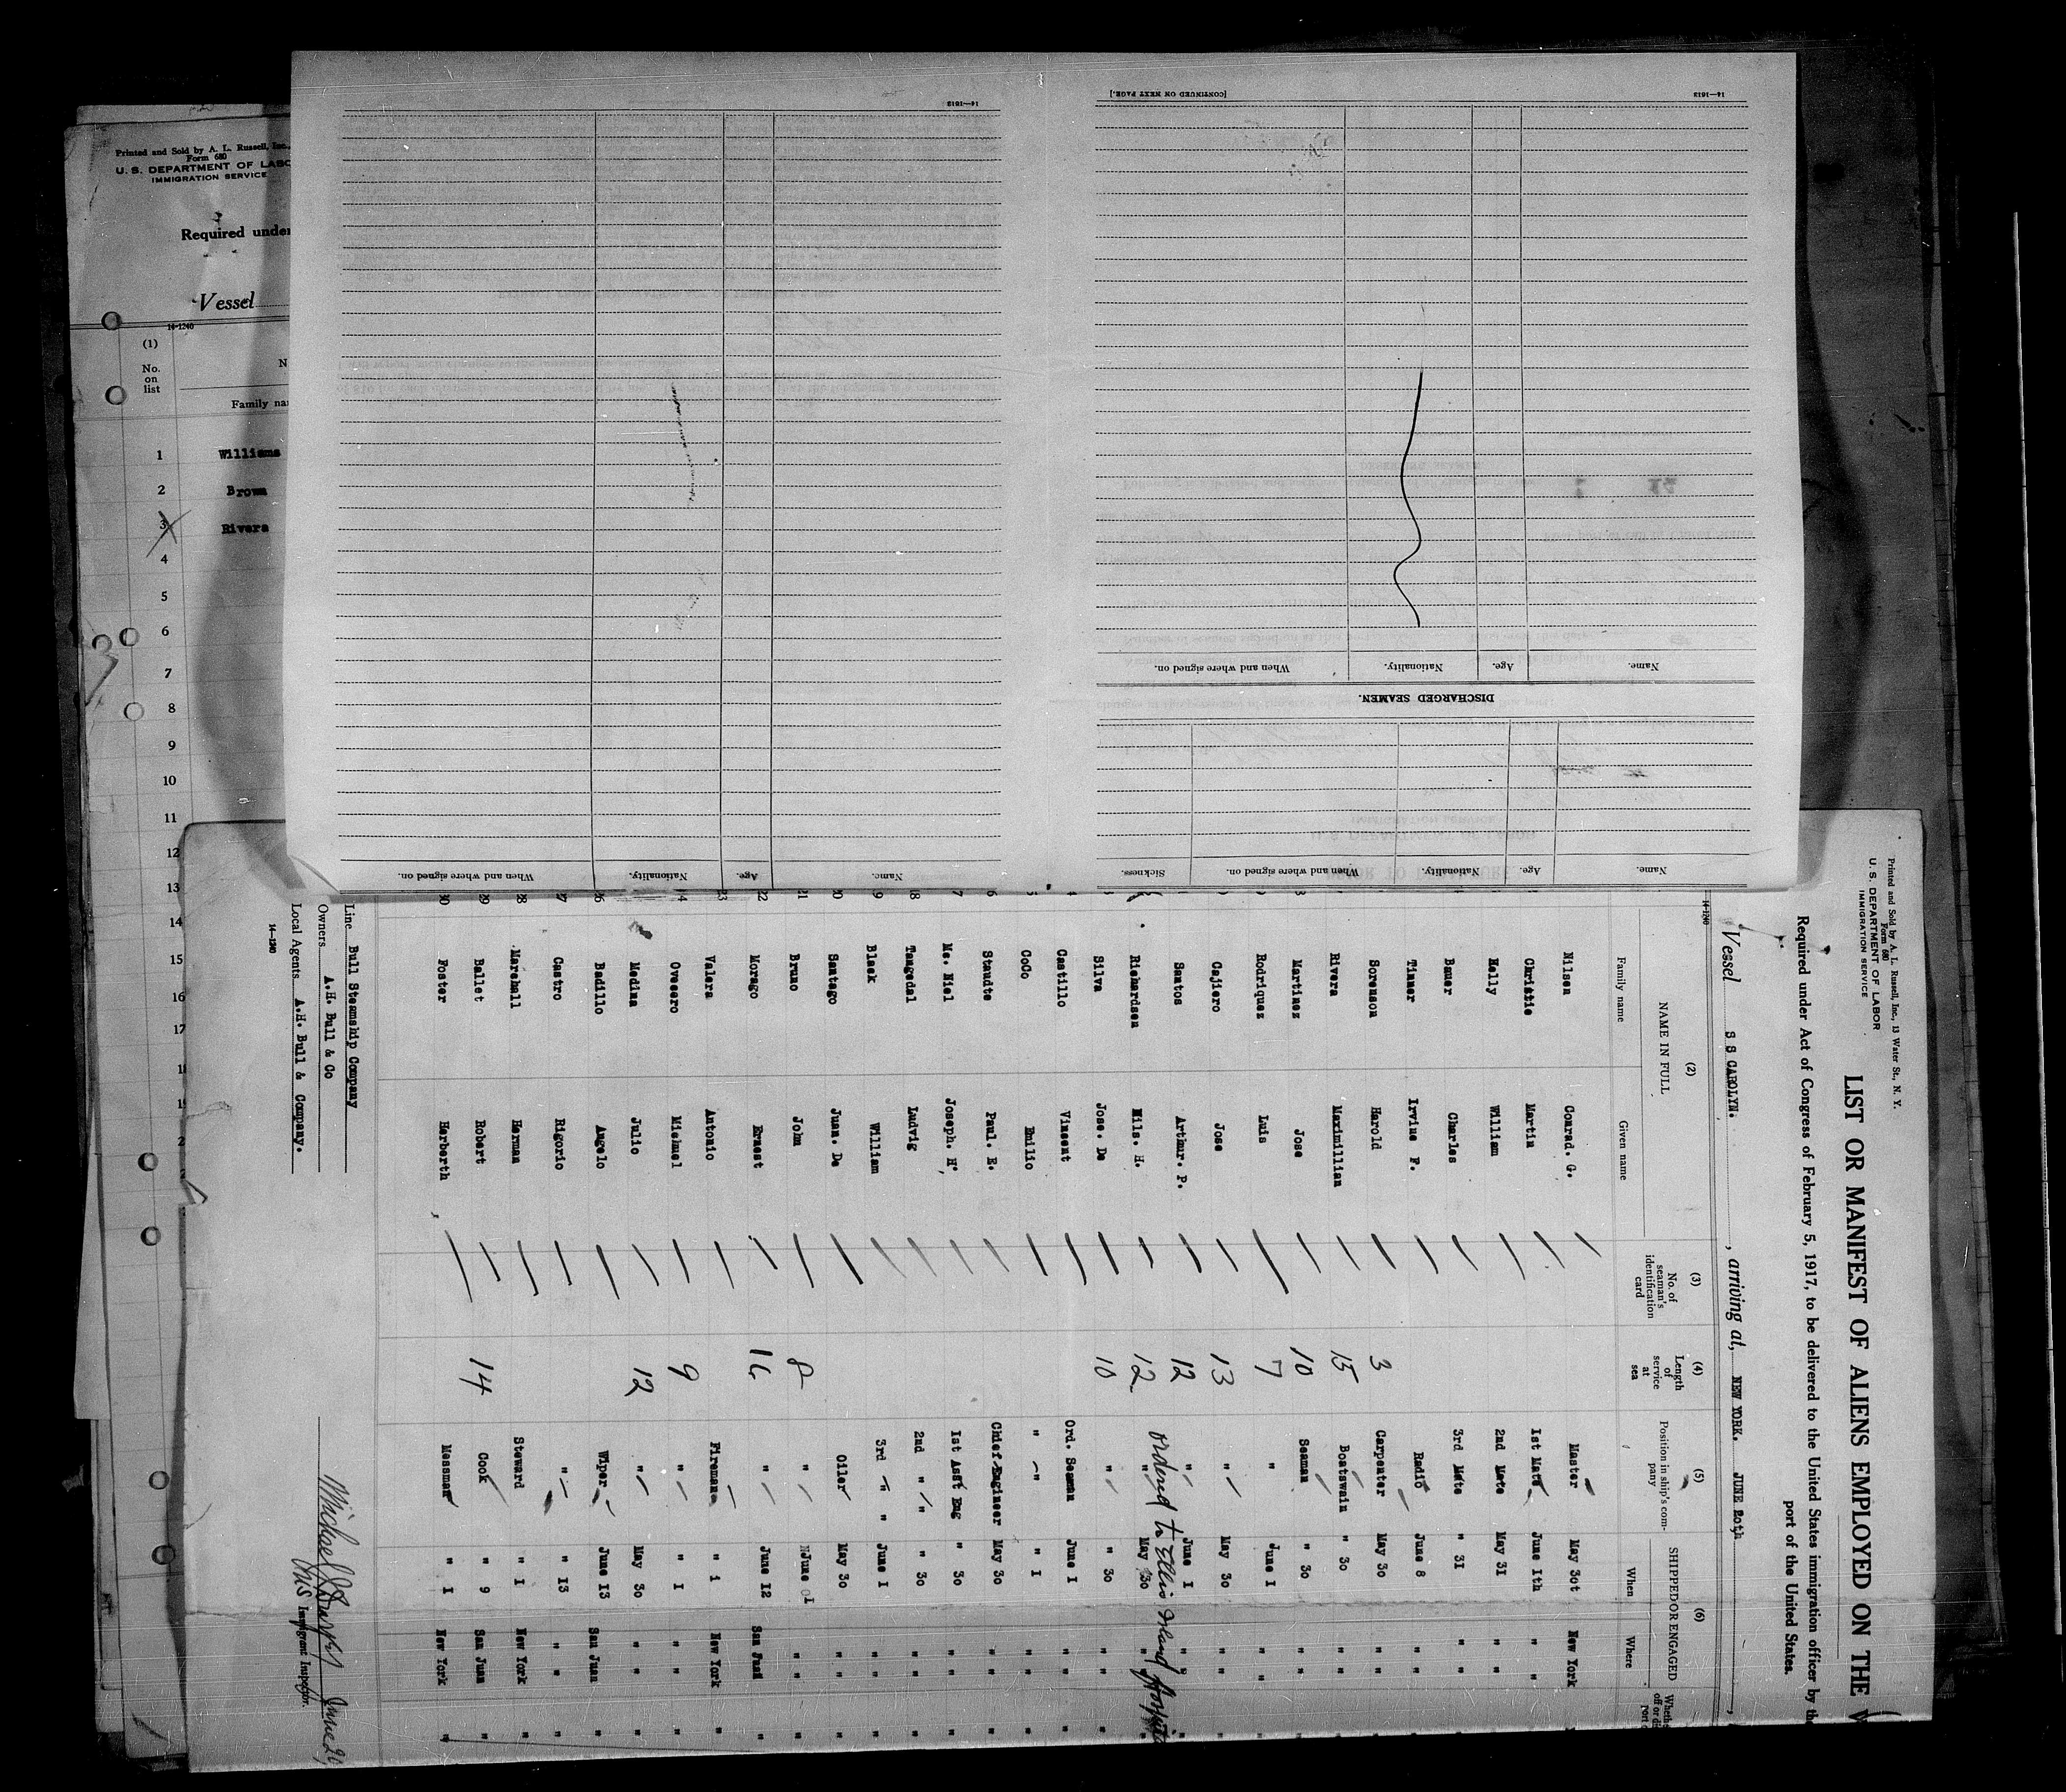 Printed and Sold by A. L. Russell, Inc.,
Form 680
U. S. DEPARTMENT OF LABO
IMMIGRATION SERVICE
Required under
Vessel
14-1240
(1)
No.
on
list
Family na
1 Williams
2 Brown
3 Rivera
4
5
6
7
8
9
10
11
12
13
14
15
16
17
14—1613
[CONTINUED ON NEXT PAGE.]
14—1613
Name. Age. Nationality. When and where signed on.
DISCHARGED SEAMEN.
Name. Age. Nationality. When and where signed on. Sickness.
Name. Age. Nationality. When and where signed on.
Printed and Sold by A. L. Russell, Inc., 13 Water St., N. Y.
Form 680
U. S. DEPARTMENT OF LABOR
IMMIGRATION SERVICE
LIST OR MANIFEST OF ALIENS EMPLOYED ON THE
Required under Act of Congress of February 5, 1917, to be delivered to the United States immigration officer by the
port of the United States.
Vessel S S CAROLYN. , arriving at, NEW YORK. JUNE 20th
14-1240
(2) (3) (4) (5) (6)
NAME IN FULL
Family name Given name
No. of seaman's identification card
Length of service at sea
Position in ship's company
SHIPPED OR ENGAGED
When Where
Nilsen Conrad. G. Master May 30t New York
Christie Martin 1st Mate June 1th " "
Kelly William 2nd Mate May 31 " "
Bauer Charles 3rd Mate " 31 " "
Tinner Irvine F. Radio June 8 " "
Sorenson Harold 3 Carpenter May 30 " "
Rivera Maximillian 15 Boatswain " 30 " "
Martinez Jose 10 Seaman " 30 " "
Rodriquez Luis 7 " June 1 " "
Cajiero Jose 13 " May 30 " "
Santos Arthur. P. 12 " June 1 " "
Richardsen Nils. H. 12 " May 30 " "
Ordered to Ellis Island Hospital
Silva Jose. De 10 " " 30 " "
Castillo Vincent Ord. Seaman June 1 " "
CoCo Emilio " " " 1 " "
Staudte Paul. E. Chief Engineer May 30 " "
17 Mc. Niel Joseph. H. 1st Asst Eng " 30 " "
18 Tangedal Ludvig 2nd " " " 30 " "
19 Black William 3rd " " June 1 " "
20 Santago Juan. De Oiler May 30 " "
21 Bruno John 8 " June 1 " "
22 Morago Ernest 16 " June 12 San Juan
23 Valera Antonio Fireman " 1 New York
24 Ovecero Michael 9 " " 1 " "
Medina Julio 12 " May 30 " "
26 Badillo Angelo Wiper June 13 San Juan
27 Castro Rigorio " " 13 " "
28 Marshall Herman Steward " 1 New York
29 Ballet Robert 14 Cook " 9 San Juan
30 Foster Herberth Messman " 1 New York
Line Bull Steamship Company
Owners A.H. Bull & Co
Local Agents A.H. Bull & Company.
14—1240
Immigrant Inspector.